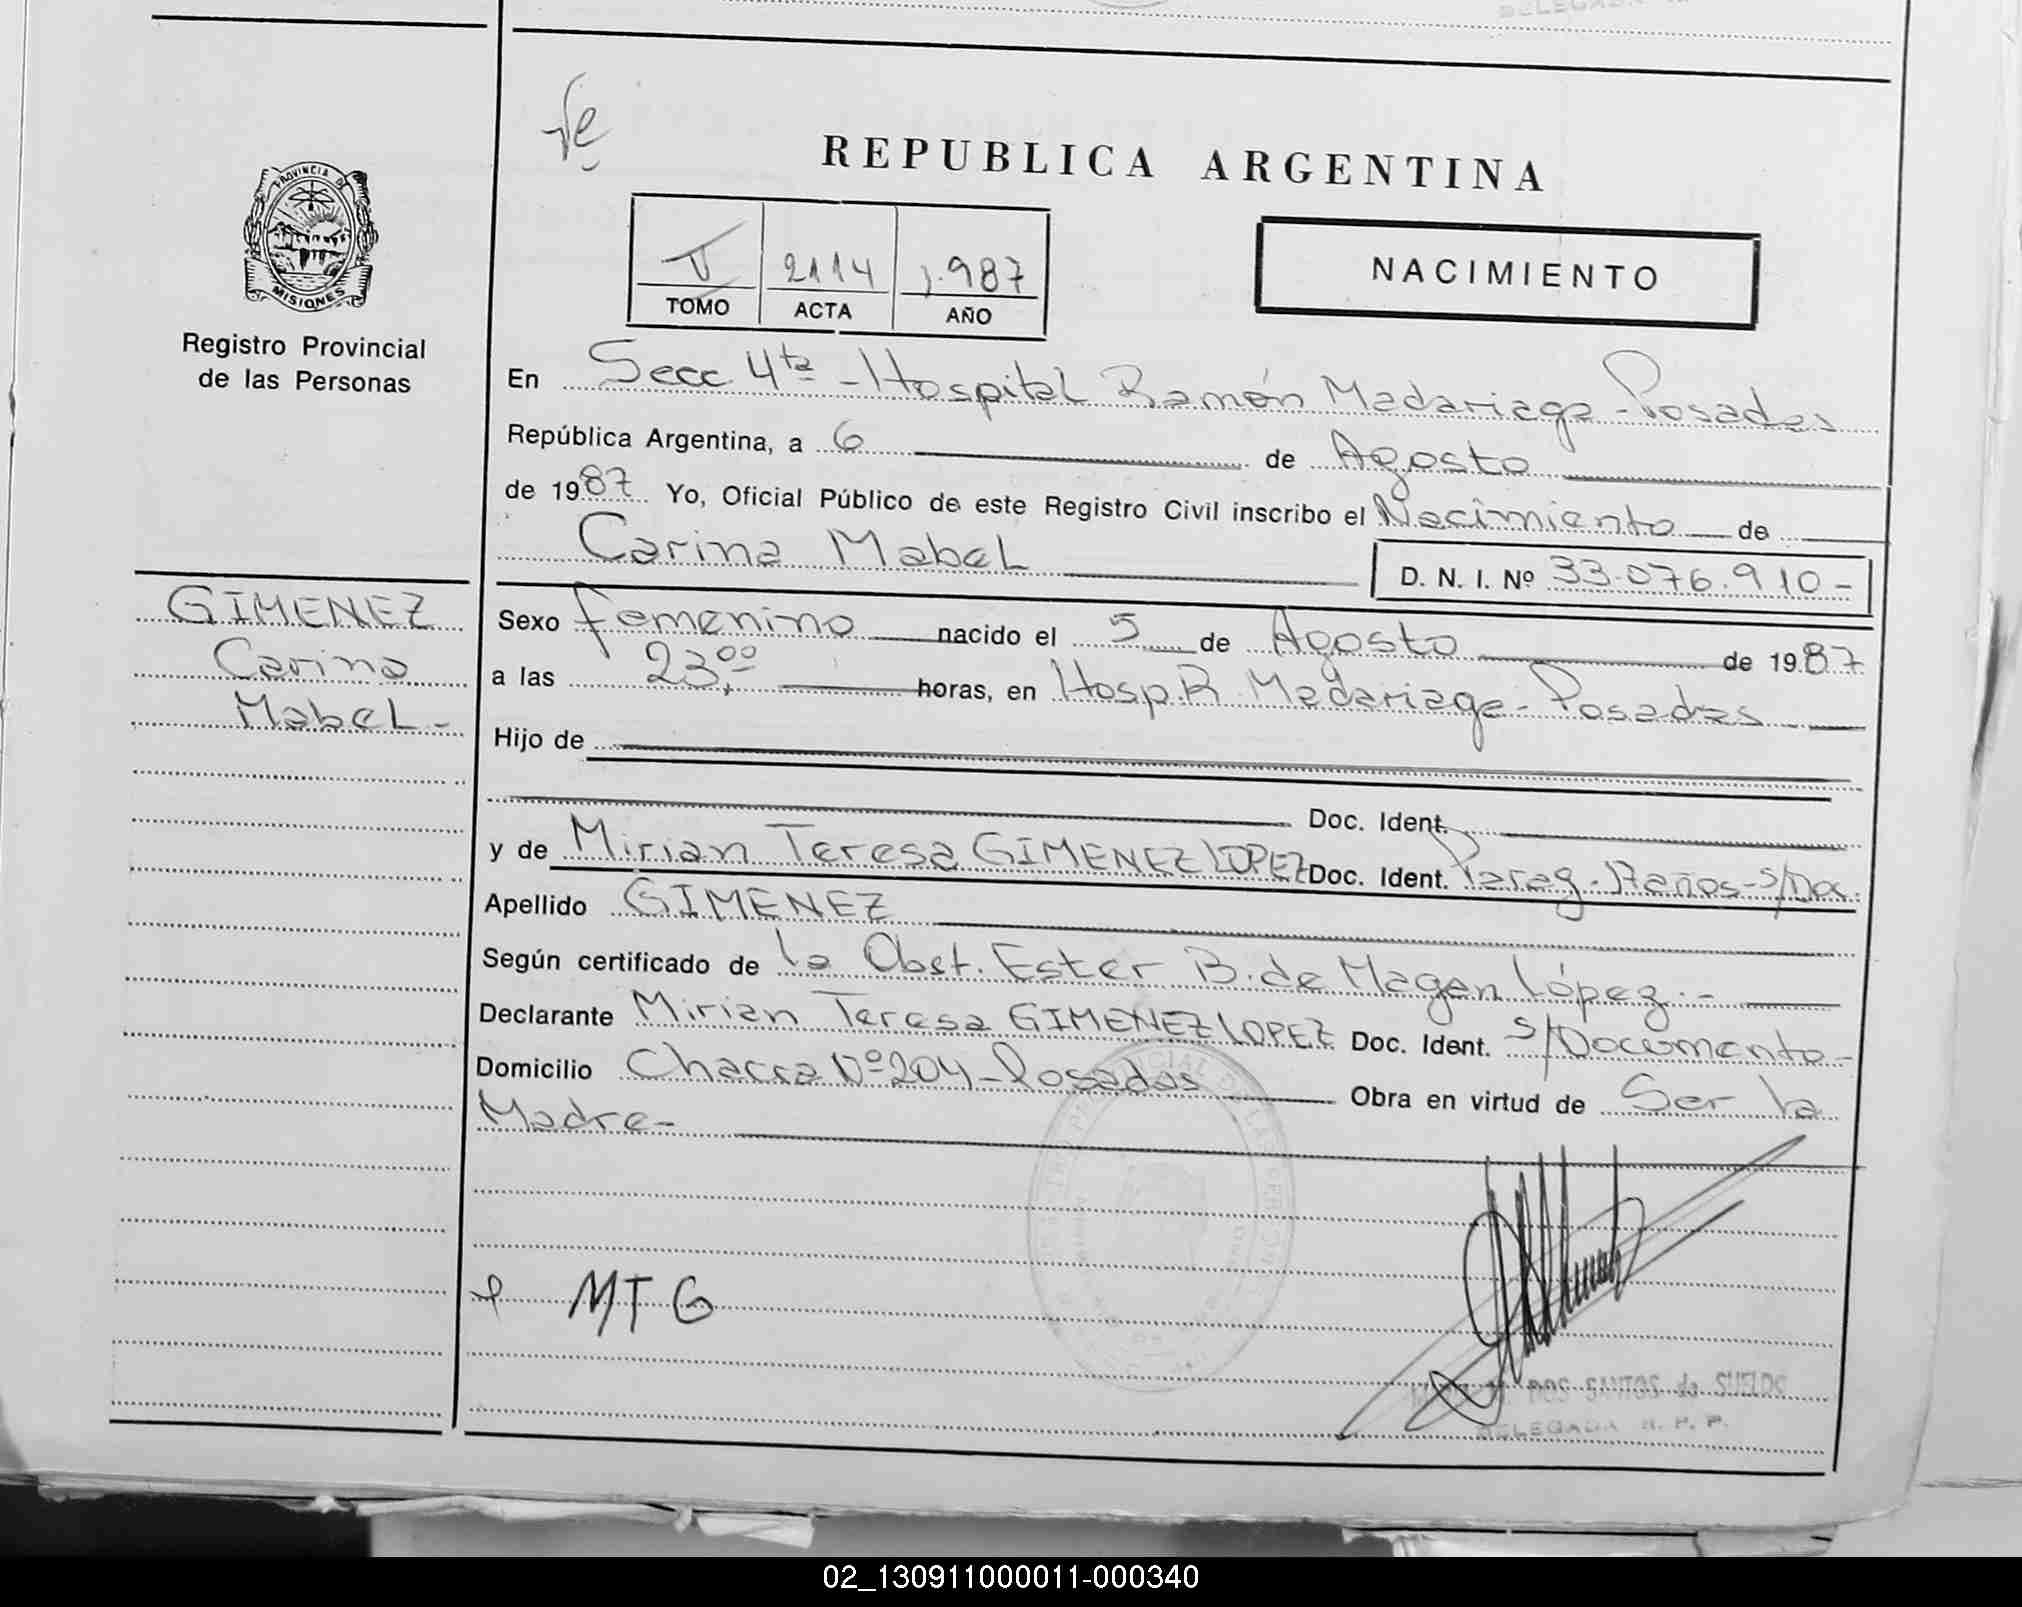 REPUBLICA ARGENTINA
PROVINCIA DE
MISIONES
Registro Provincial
de las Personas
2114 1.987
TOMO ACTA AÑO
NACIMIENTO
En Secc. 4ta - Hospital Ramón Madariaga - Posadas
República Argentina, a 6 de Agosto
de 1987 Yo, Oficial Público de este Registro Civil inscribo el Nacimiento de
Carina Mabel D. N. I. Nº 33.076.910-
GIMENEZ
Carina
Mabel-
Sexo femenino nacido el 5 de Agosto de 1987
a las 23,00 horas, en Hosp. R. Madariaga - Posadas
Hijo de
Doc. Ident.
y de Mirian Teresa GIMENEZ LOPEZ Doc. Ident. Parag - 17 años - S/Doc.
Apellido GIMENEZ
Según certificado de la Obst. Ester B. de Magen López.-
Declarante Mirian Teresa GIMENEZ LOPEZ Doc. Ident. S/Documento-
Domicilio Chacra Nº 204 - Posadas Obra en virtud de Ser la
Madre-
MTG
DOS SANTOS de SUELDO
DELEGADA R. P. P.
02_130911000011-000340